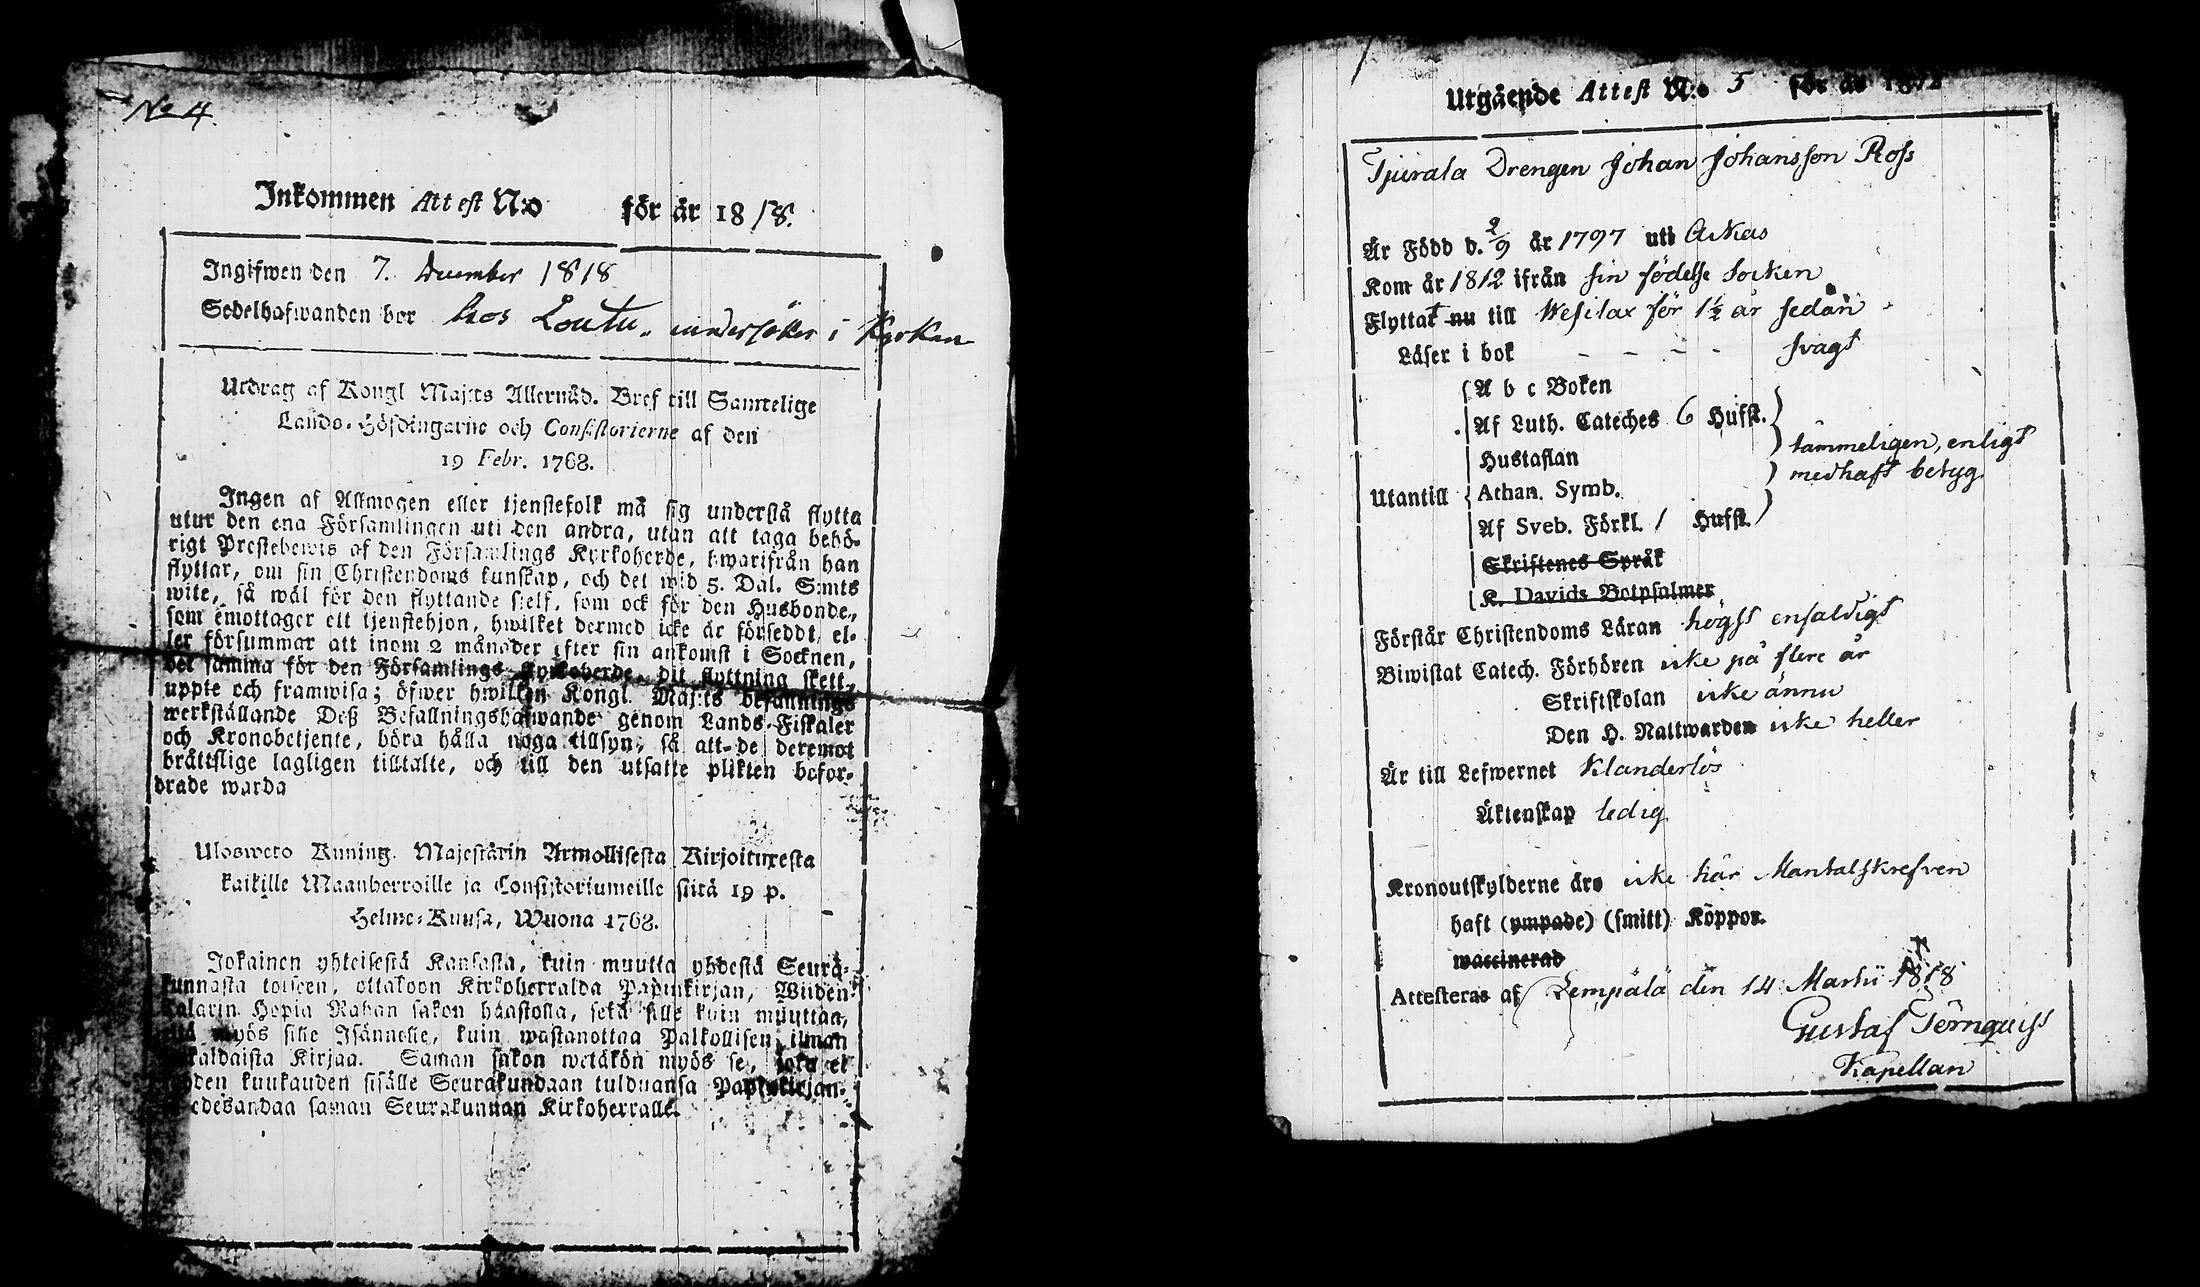 No 4.
Inkommen Attest N:o för år 1818.
Ingifwen den 7. December 1818
Sedelhafwanden bor hos Loutu, undersökes i Kyrkan
Utdrag af Kongl Maj:ts Allernåd. Bref till Samtelige
Lands-Höfdingarne och Consistorierne af den
19 Febr. 1768.
Ingen af Allmogen eller tjenstefolk må sig understå flytta
utur den ena Församlingen uti den andra, utan att taga behö-
rigt Prestebewis af den Församlings Kyrkoherde, hwarifrån han
flyttar, om sin Christendoms kunskap, och det wid 5. Dal. S:mts
wite, så wäl för den flyttande sielf, som ock för den Husbonde,
som emottager ett tjenstehjon, hwilket dermed icke är förseddt, el-
ler försummar att inom 2 månader efter sin ankomst i Socknen,
det samma för den Församlings Kyrkoherde, dit flyttning skett,
uppte och framwisa; öfwer hwilken Kongl. Maj:ts befallnings
werkställande Deß Befallningshafwande genom Lands-Fiskaler
och Kronobetjente, böra hålla noga tillsyn, så att de deremot
bråttslige lagligen tilltalte, och till den utsatte plikten befor-
drade warda
Uloswero Kuning. Majestärin Armollisesta Kirjoituxesta
kaikille Maanherroille ja Consistoriumeille siitä 19 p.
Helme-Kuusa, Wuona 1768.
Jokainen yhteisestä Kansasta, kuin muutta yhdestä Seura-
kunnasta toiseen, ottakoon Kirkoherralda Papinkirjan, Wiiden
Talarin Hopia Rahan sakon haastolla, sekä sille kuin muuttaa,
että myös sille Isännelle, kuin wastanottaa Palkollisen ilman
kaldaista Kirjaa. Saman sakon wetäkön myös se, joka ei
kuukauden sisälle Seurakundaan tulduansa Papinkirjan-
edesandaa saman Seurakunnan Kirkoherralle.
Utgående Attest N:o 5 för år 1812
Tjurala Drengen Johan Johansson Ross
Är Född d. 2/9 år 1797 uti Ackas
Kom år 1812 ifrån sin födelse socken
Flyttat nu till Wesilax för 1½ år sedan
Läser i bok - - - - svagt
A b c Boken
Af Luth. Cateches 6 Hufst.
tämmeligen, enligt
Hustaflan
medhaft betyg
Utantill Athan. Symb.
Af Sveb. Förkl. 1 Hufst.
Skriftenes Språk
K. Davids Botpsalmer
Förstår Christendoms Läran högst enfaldigt
Biwistat Catech. Förhören icke på flere år
Skriftskolan icke ännu
Den H. Nattwarden icke heller
Är till Lefwernet Klanderlös
Äktenskap ledig
Kronoutskylderne äro icke här Mantalskrefven
haft (ympade) (smitt) Koppor.
waccinerad
Attesteras af Lempälä den 14 Martii 1818
Gustaf Törnquist
Kapellan